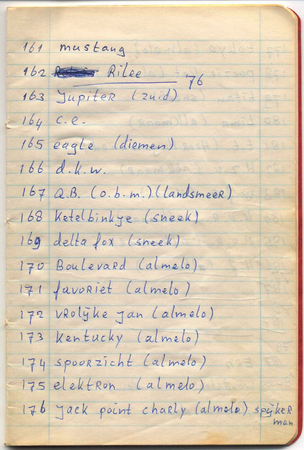 161 mustang
162 Rilee 76
163 Jupiter (zuid)
164 c.e.
165 eagle (diemen)
166 d.k.w.
167 Q.B. (o.b.m.) (landsmeer)
168 Ketelbinkje (sneek)
169 delta fox (sneek)
170 Boulevard (almelo)
171 favoriet (almelo)
172 vrolijke Jan (almelo)
173 Kentucky (almelo)
174 spoorzicht (almelo)
175 elektron (almelo)
176 Jack point charly (almelo) spijker
man